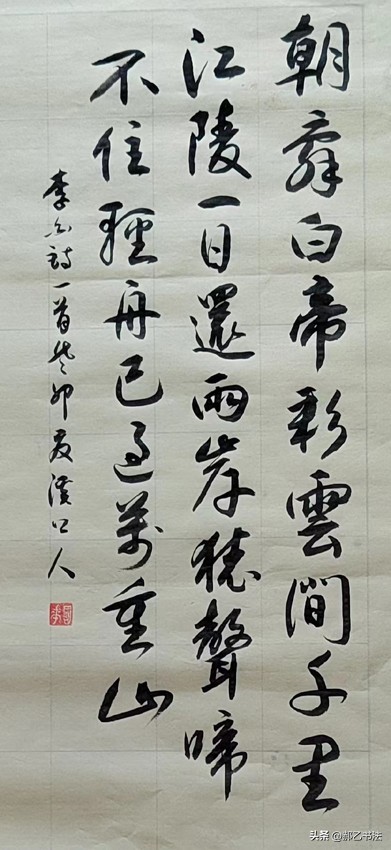 朝辭白帝彩雲間千里
江陵一日還兩岸猿聲啼
不住輕舟已過萬重山
李白詩一首癸卯夏漢口人
头条 @郝乙书法